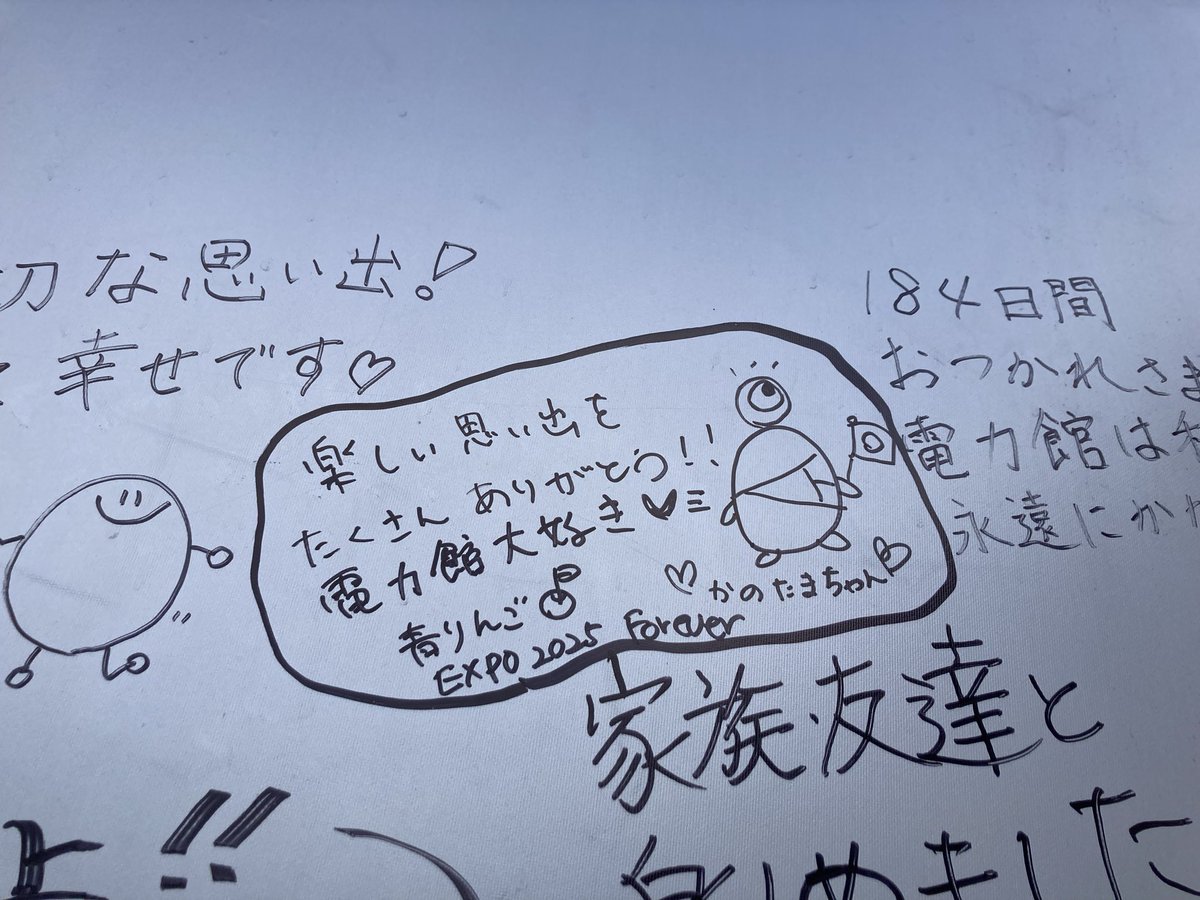 切な思い出!
幸せです♡
楽しい思い出を
たくさんありがとう!!
電力館大好き♥
青りんご
EXPO 2025 Forever
♡かのたまちゃん♡
184日間
おつかれさま
電力館は
永遠にか
家族・友達と
よ!!
めました